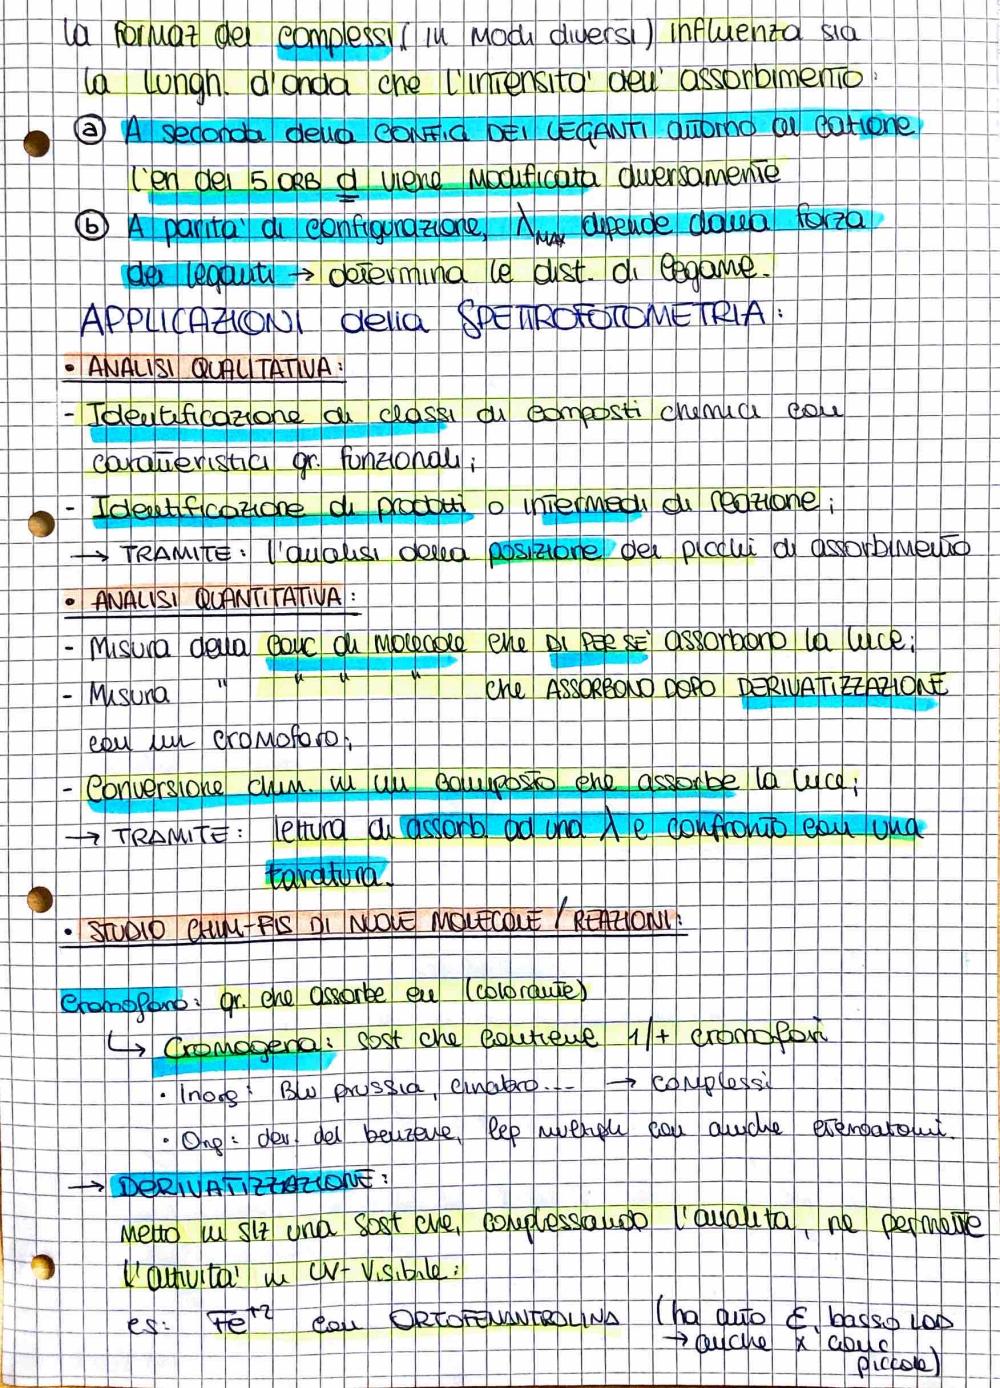 la formaz dei complessi (in modi diversi) influenza sia
la lungh. d'onda che l'intensita' dell' assorbimento:
ⓐ A seconda della CONFIG DEI LEGANTI attorno al catione
l'en dei 5 ORB d viene modificata diversamente
ⓑ A parita' di configurazione, λMAX dipende dalla forza
dei leganti → determina le dist. di legame.
APPLICAZIONI della SPETTROFOTOMETRIA:
• ANALISI QUALITATIVA:
- Identificazione di classi di composti chimici con
caratteristici gr. funzionali;
- Identificazione di prodotti o intermedi di reazione;
→ TRAMITE: l'analisi della posizione dei picchi di assorbimento
• ANALISI QUANTITATIVA:
- Misura della conc di molecole che DI PER SE' assorbono la luce;
- Misura " " " " che ASSORBONO DOPO DERIVATIZZAZIONE
con un cromoforo;
- Conversione chim. in un composto che assorbe la luce;
→ TRAMITE: lettura di assorb. ad una λ e confronto con una
taratura.
• STUDIO CHIM-FIS DI NUOVE MOLECOLE / REAZIONI:
Cromoforo: gr. che assorbe en (colorante)
↳ Cromogena: sost che contiene 1/+ cromofori
• Inorg: Blu prussia, cinabro... → complessi
• Org: der. del benzene, lep multipli con anche eteroatomi.
→ DERIVATIZZAZIONE:
Metto in slz una sost che, complessando l'analita, ne permette
l'attivita' in UV-Visibile:
es: Fe⁺² con ORTOFENANTROLINA (ha alto ε, basso LOD
→ anche x conc
piccole)